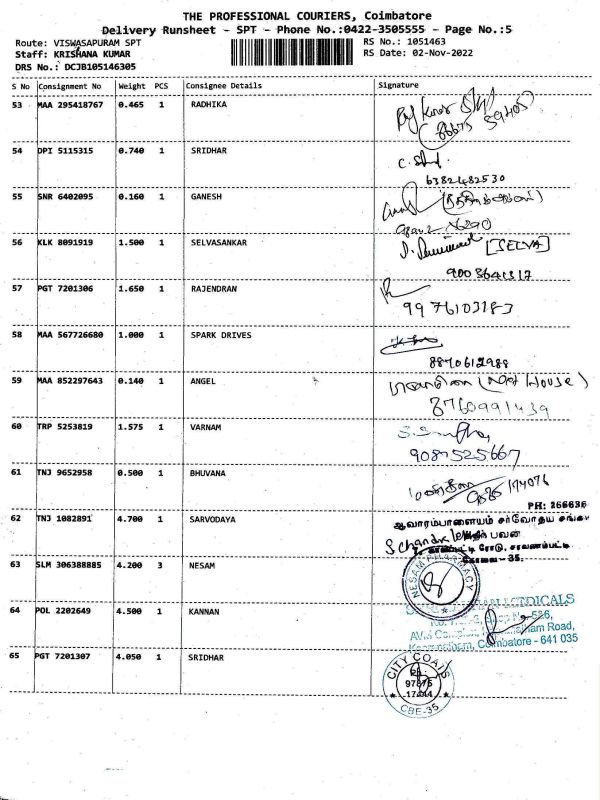 THE PROFESSIONAL COURIERS, Coimbatore
Delivery Runsheet - SPT - Phone No.:0422-3505555 - Page No.:5
Route: VISWASAPURAM SPT
RS No.: 1051463
Staff: KRISHANA KUMAR
RS Date: 02-Nov-2022
DRS No.: DCJB105146305
S No Consignment No Weight PCS Consignee Details Signature
53 MAA 295418767 0.465 1 RADHIKA
54 DPI 5115315 0.740 1 SRIDHAR
6382482530
55 SNR 6402095 0.160 1 GANESH
56 KLK 8091919 1.500 1 SELVASANKAR [SELVA]
9003641317
57 PGT 7201306 1.650 1 RAJENDRAN
9976103183
58 MAA 567726680 1.000 1 SPARK DRIVES
8870612988
59 MAA 852297643 0.140 1 ANGEL
8760991439
60 TRP 5253819 1.575 1 VARNAM
9087525667
61 TNJ 9652958 0.500 1 BHUVANA
PH: 266636
62 TNJ 1082891 4.700 1 SARVODAYA
ஆவாரம்பாளையம் சர்வோதய சங்க
பவன்
ரோடு, சரவணம்பட்டி
கோவை - 35.
63 SLM 306388885 4.200 3 NESAM
NESAM PHARMACY
64 POL 2202649 4.500 1 KANNAN
Road,
Coimbatore - 641 035
65 PGT 7201307 4.050 1 SRIDHAR
CITY COATS
PH:
97876
CBE-35